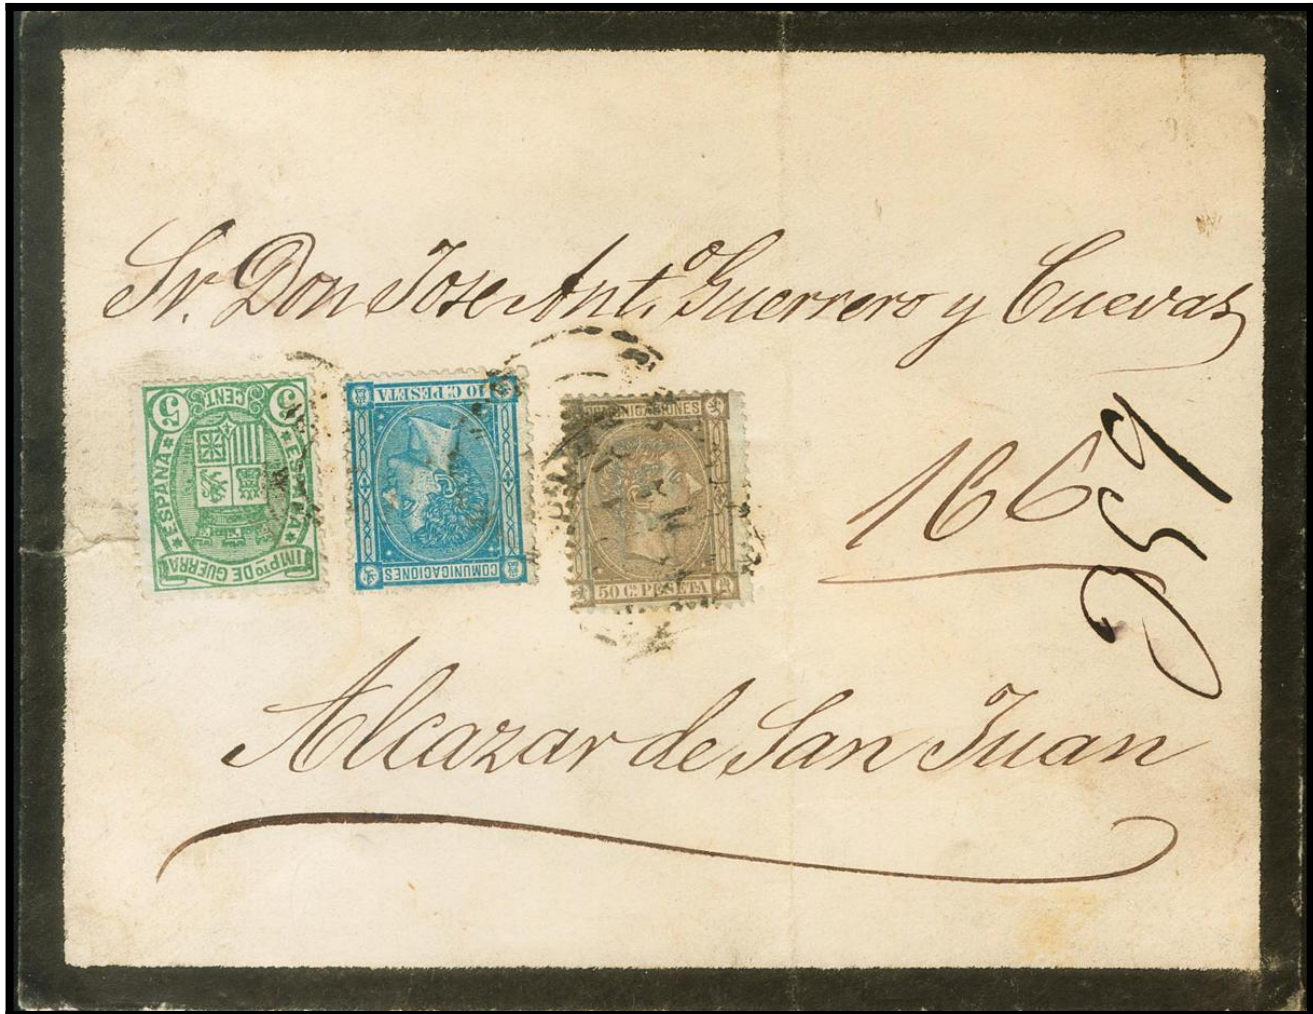 Sr. Don Jose Ant.º Guerrero y Cuevas
5 CENT. 5
* ESPAÑA * * ESPAÑA *
IMPTO DE GUERRA
10 C. PESETA
COMUNICACIONES
COMUNICACIONES
50 Cs. PESETA
166
Alcazar de San Juan